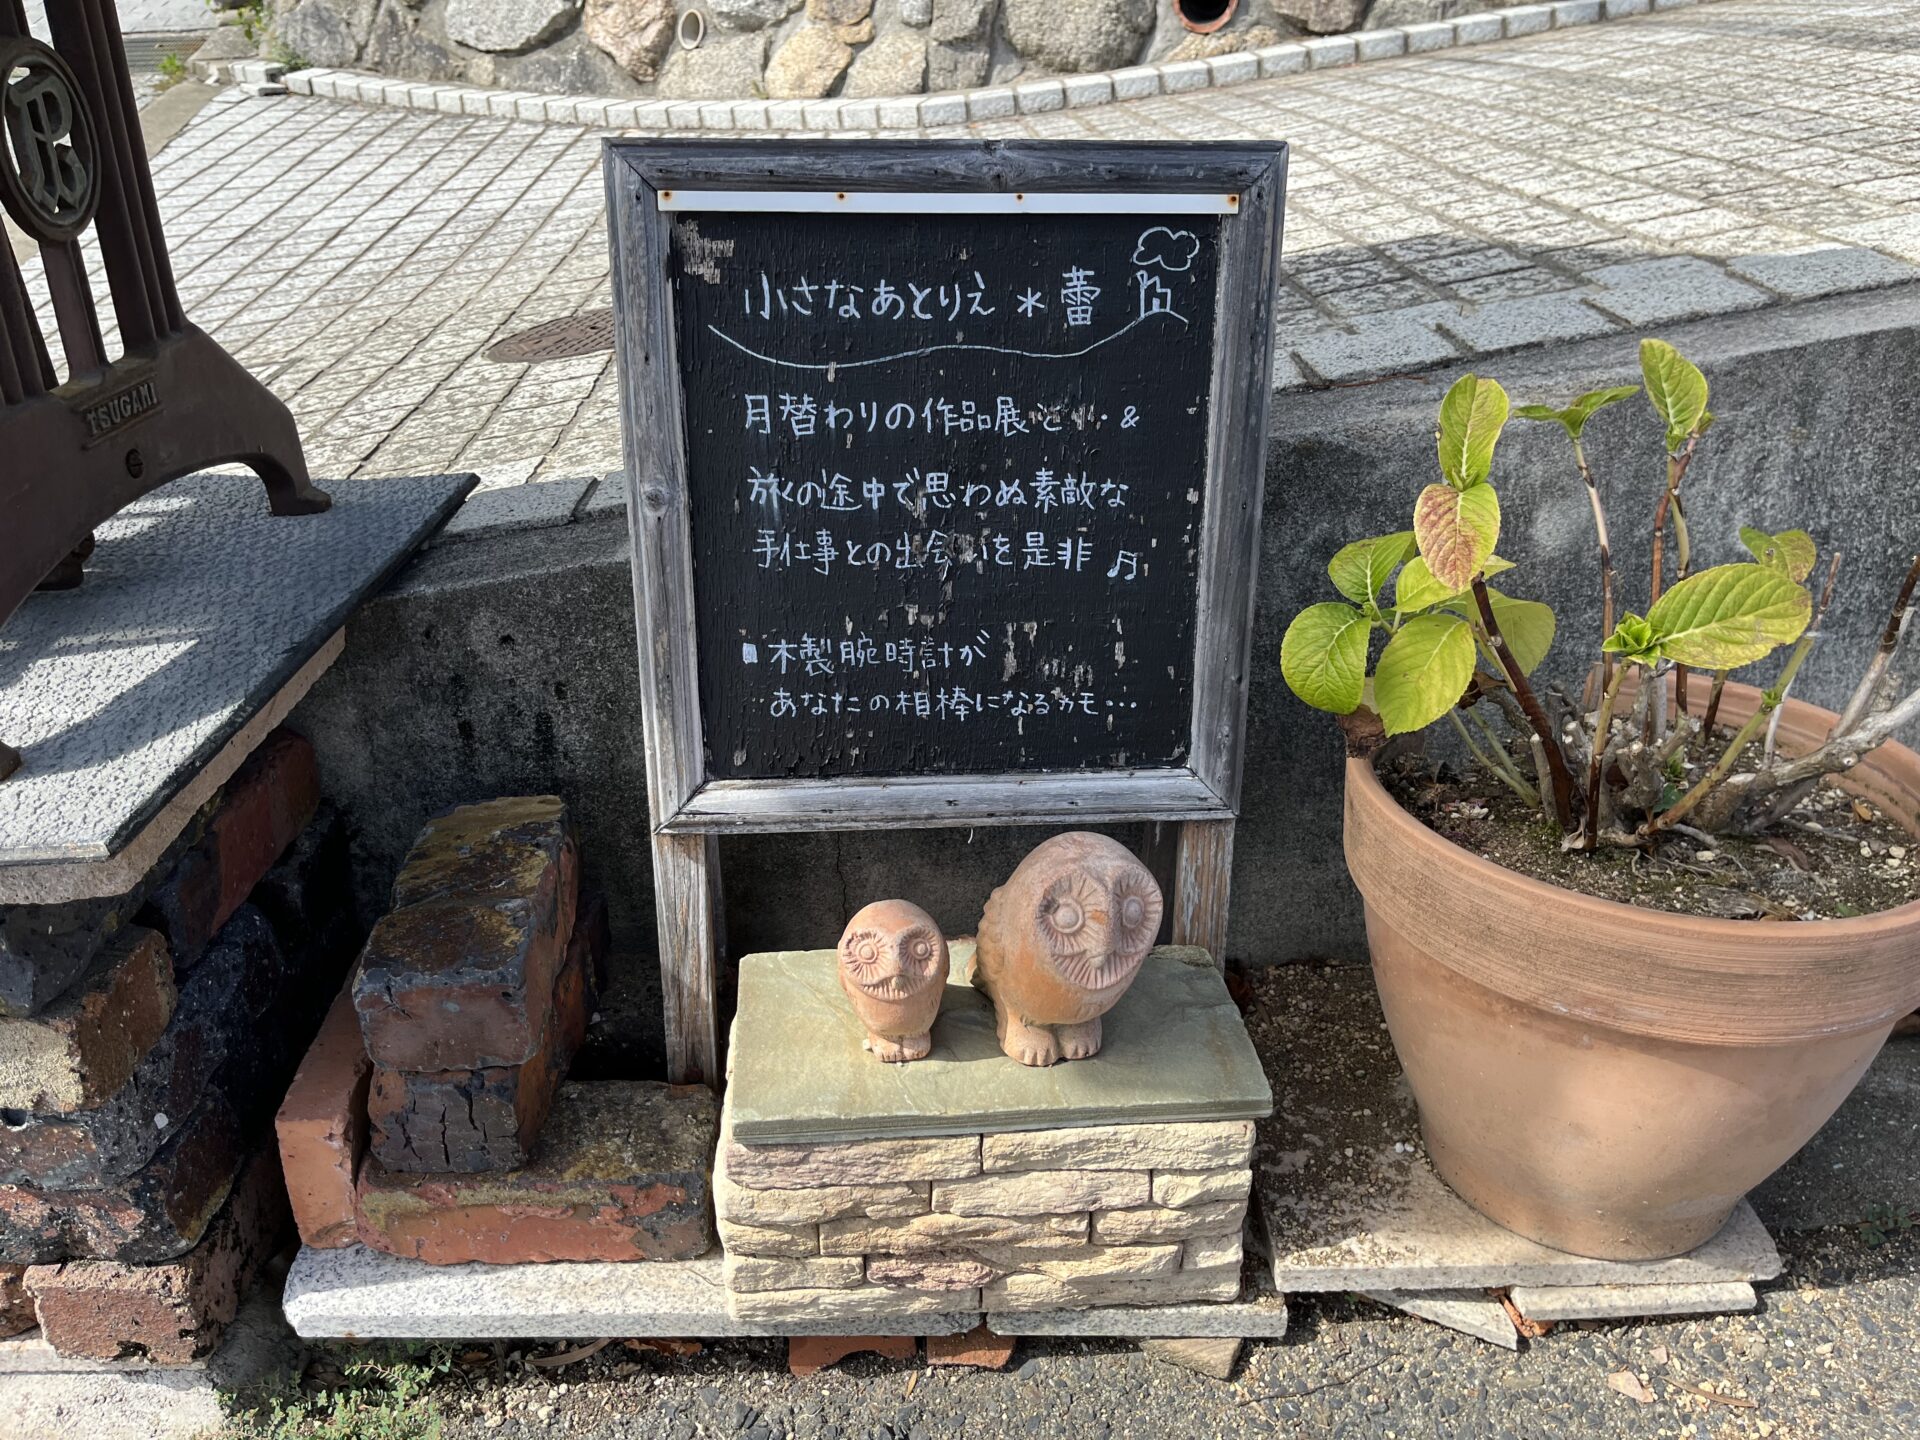 小さなあとりえ＊蕾
月替わりの作品展と・・・&
旅の途中で思わぬ素敵な
手仕事との出会いを是非♬
■木製腕時計が
あなたの相棒になるカモ・・・
TSUGAMI